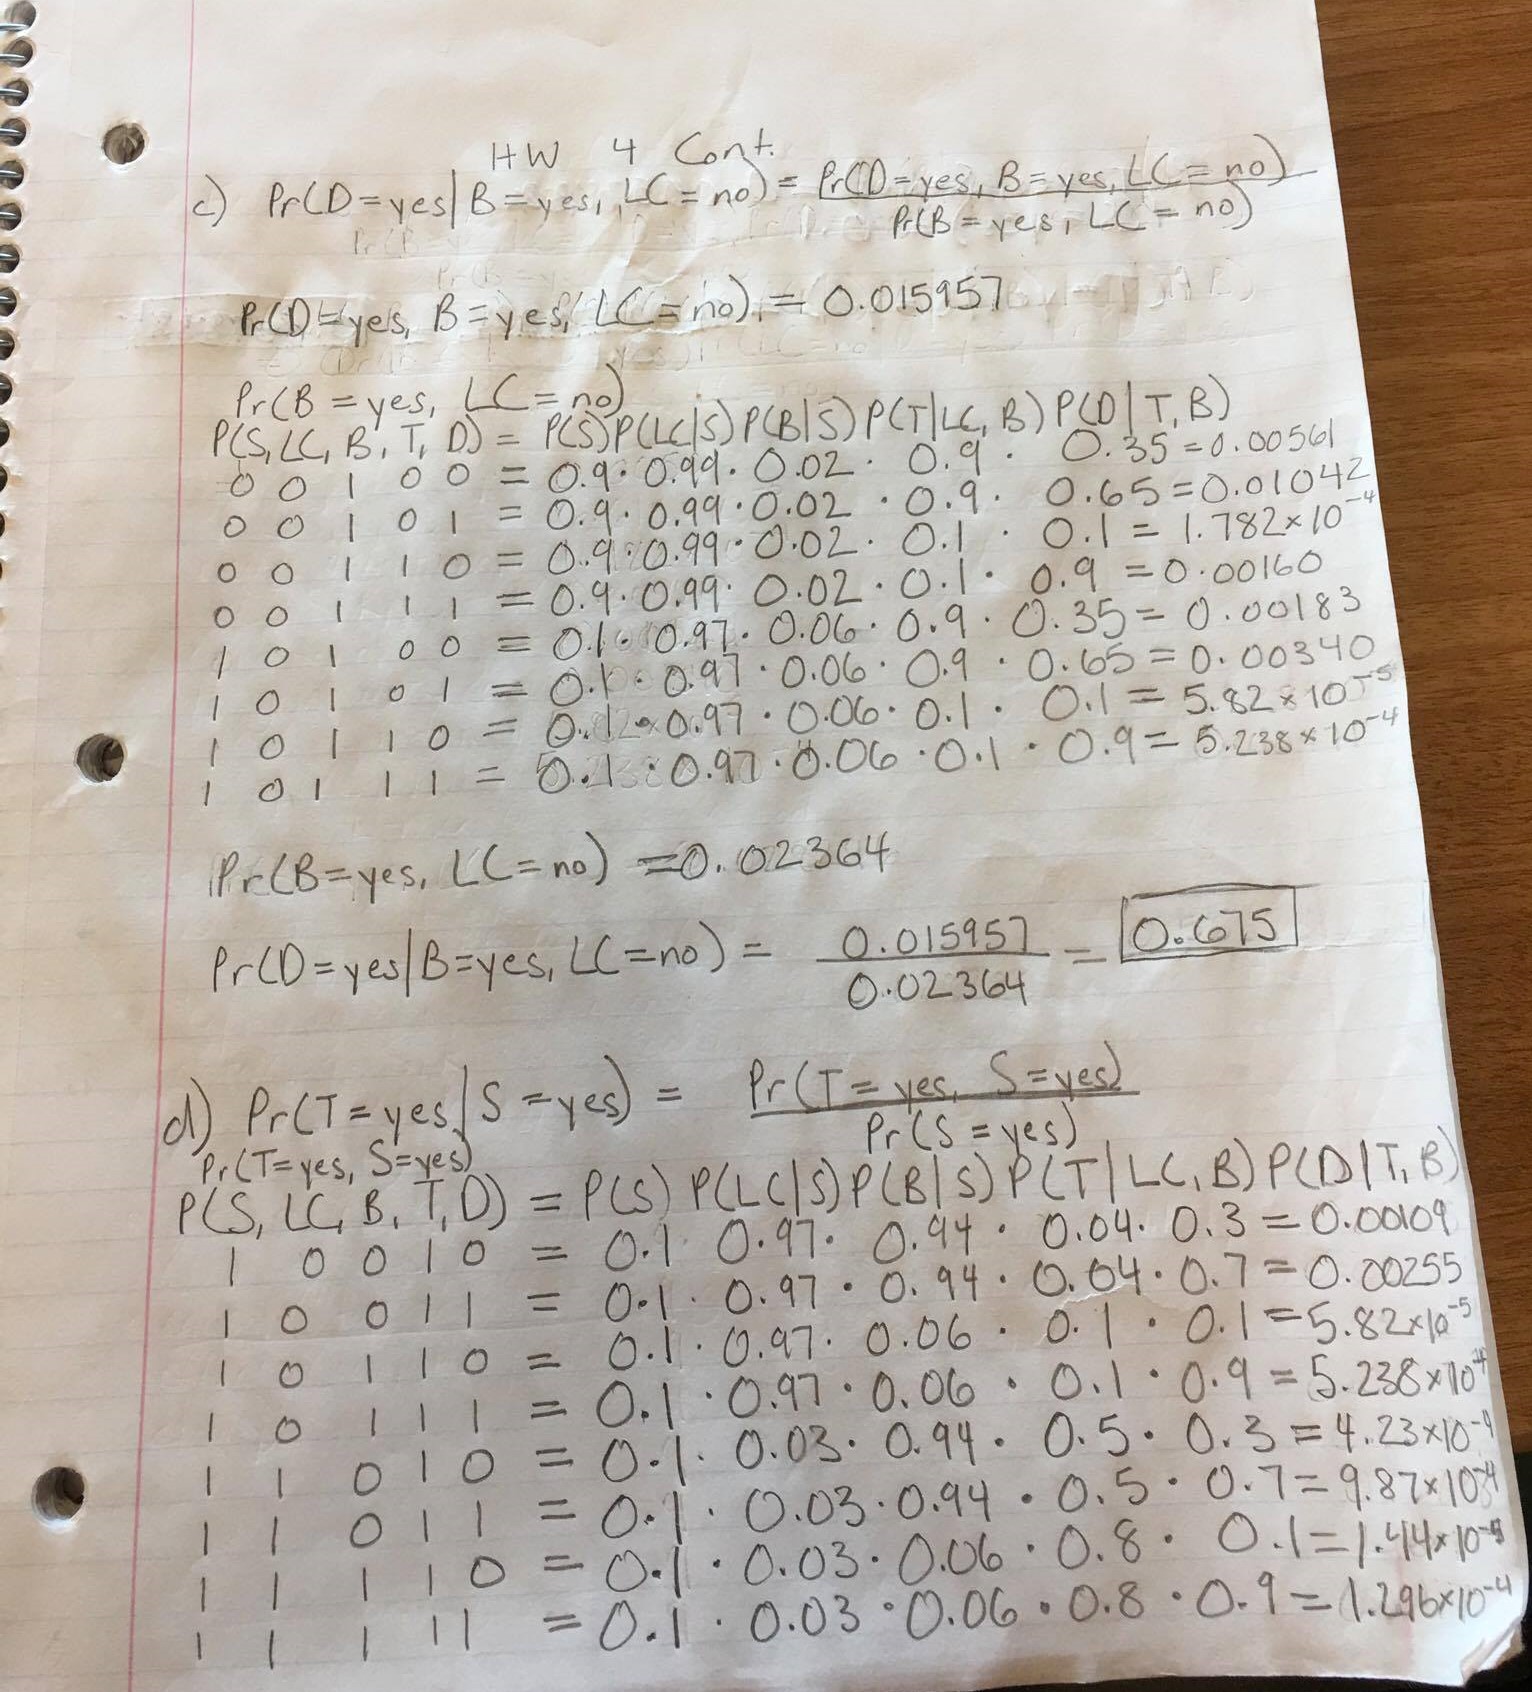 HW 4 Cont.
c) Pr(D=yes|B=yes, LC=no) = Pr(D=yes, B=yes, LC=no)
Pr(B=yes, LC=no)
Pr(D=yes, B=yes, LC=no) = 0.015957
Pr(B=yes, LC=no)
P(S, LC, B, T, D) = P(S)P(LC|S)P(B|S)P(T|LC, B)P(D|T, B)
0 0 1 0 0 = 0.9·0.99·0.02·0.9·0.35=0.00561
0 0 1 0 1 = 0.9·0.99·0.02·0.9·0.65=0.01042
0 0 1 1 0 = 0.9·0.99·0.02·0.1·0.1=1.782×10⁻⁴
0 0 1 1 1 = 0.9·0.99·0.02·0.1·0.9=0.00160
1 0 1 0 0 = 0.1·0.97·0.06·0.9·0.35=0.00183
1 0 1 0 1 = 0.1·0.97·0.06·0.9·0.65=0.00340
1 0 1 1 0 = 0.1·0.97·0.06·0.1·0.1=5.82×10⁻⁵
1 0 1 1 1 = 0.1·0.97·0.06·0.1·0.9=5.238×10⁻⁴
Pr(B=yes, LC=no) =0.02364
Pr(D=yes|B=yes, LC=no) = 0.015957 = 0.675
0.02364
d) Pr(T=yes|S=yes) = Pr(T=yes, S=yes)
Pr(S=yes)
Pr(T=yes, S=yes)
P(S, LC, B, T, D) = P(S) P(LC|S) P(B|S) P(T|LC, B) P(D|T, B)
1 0 0 1 0 = 0.1 0.97·0.94·0.04·0.3=0.00109
1 0 0 1 1 = 0.1·0.97·0.94·0.04·0.7=0.00255
1 0 1 1 0 = 0.1·0.97·0.06·0.1·0.1=5.82×10⁻⁵
1 0 1 1 1 = 0.1·0.97·0.06·0.1·0.9=5.238×10⁻⁴
1 1 0 1 0 = 0.1·0.03·0.94·0.5·0.3=4.23×10⁻⁴
1 1 0 1 1 = 0.1·0.03·0.94·0.5·0.7=9.87×10⁻⁴
1 1 1 1 0 = 0.1·0.03·0.06·0.8·0.1=1.44×10⁻⁵
1 1 1 1 1 = 0.1·0.03·0.06·0.8·0.9=1.296×10⁻⁴